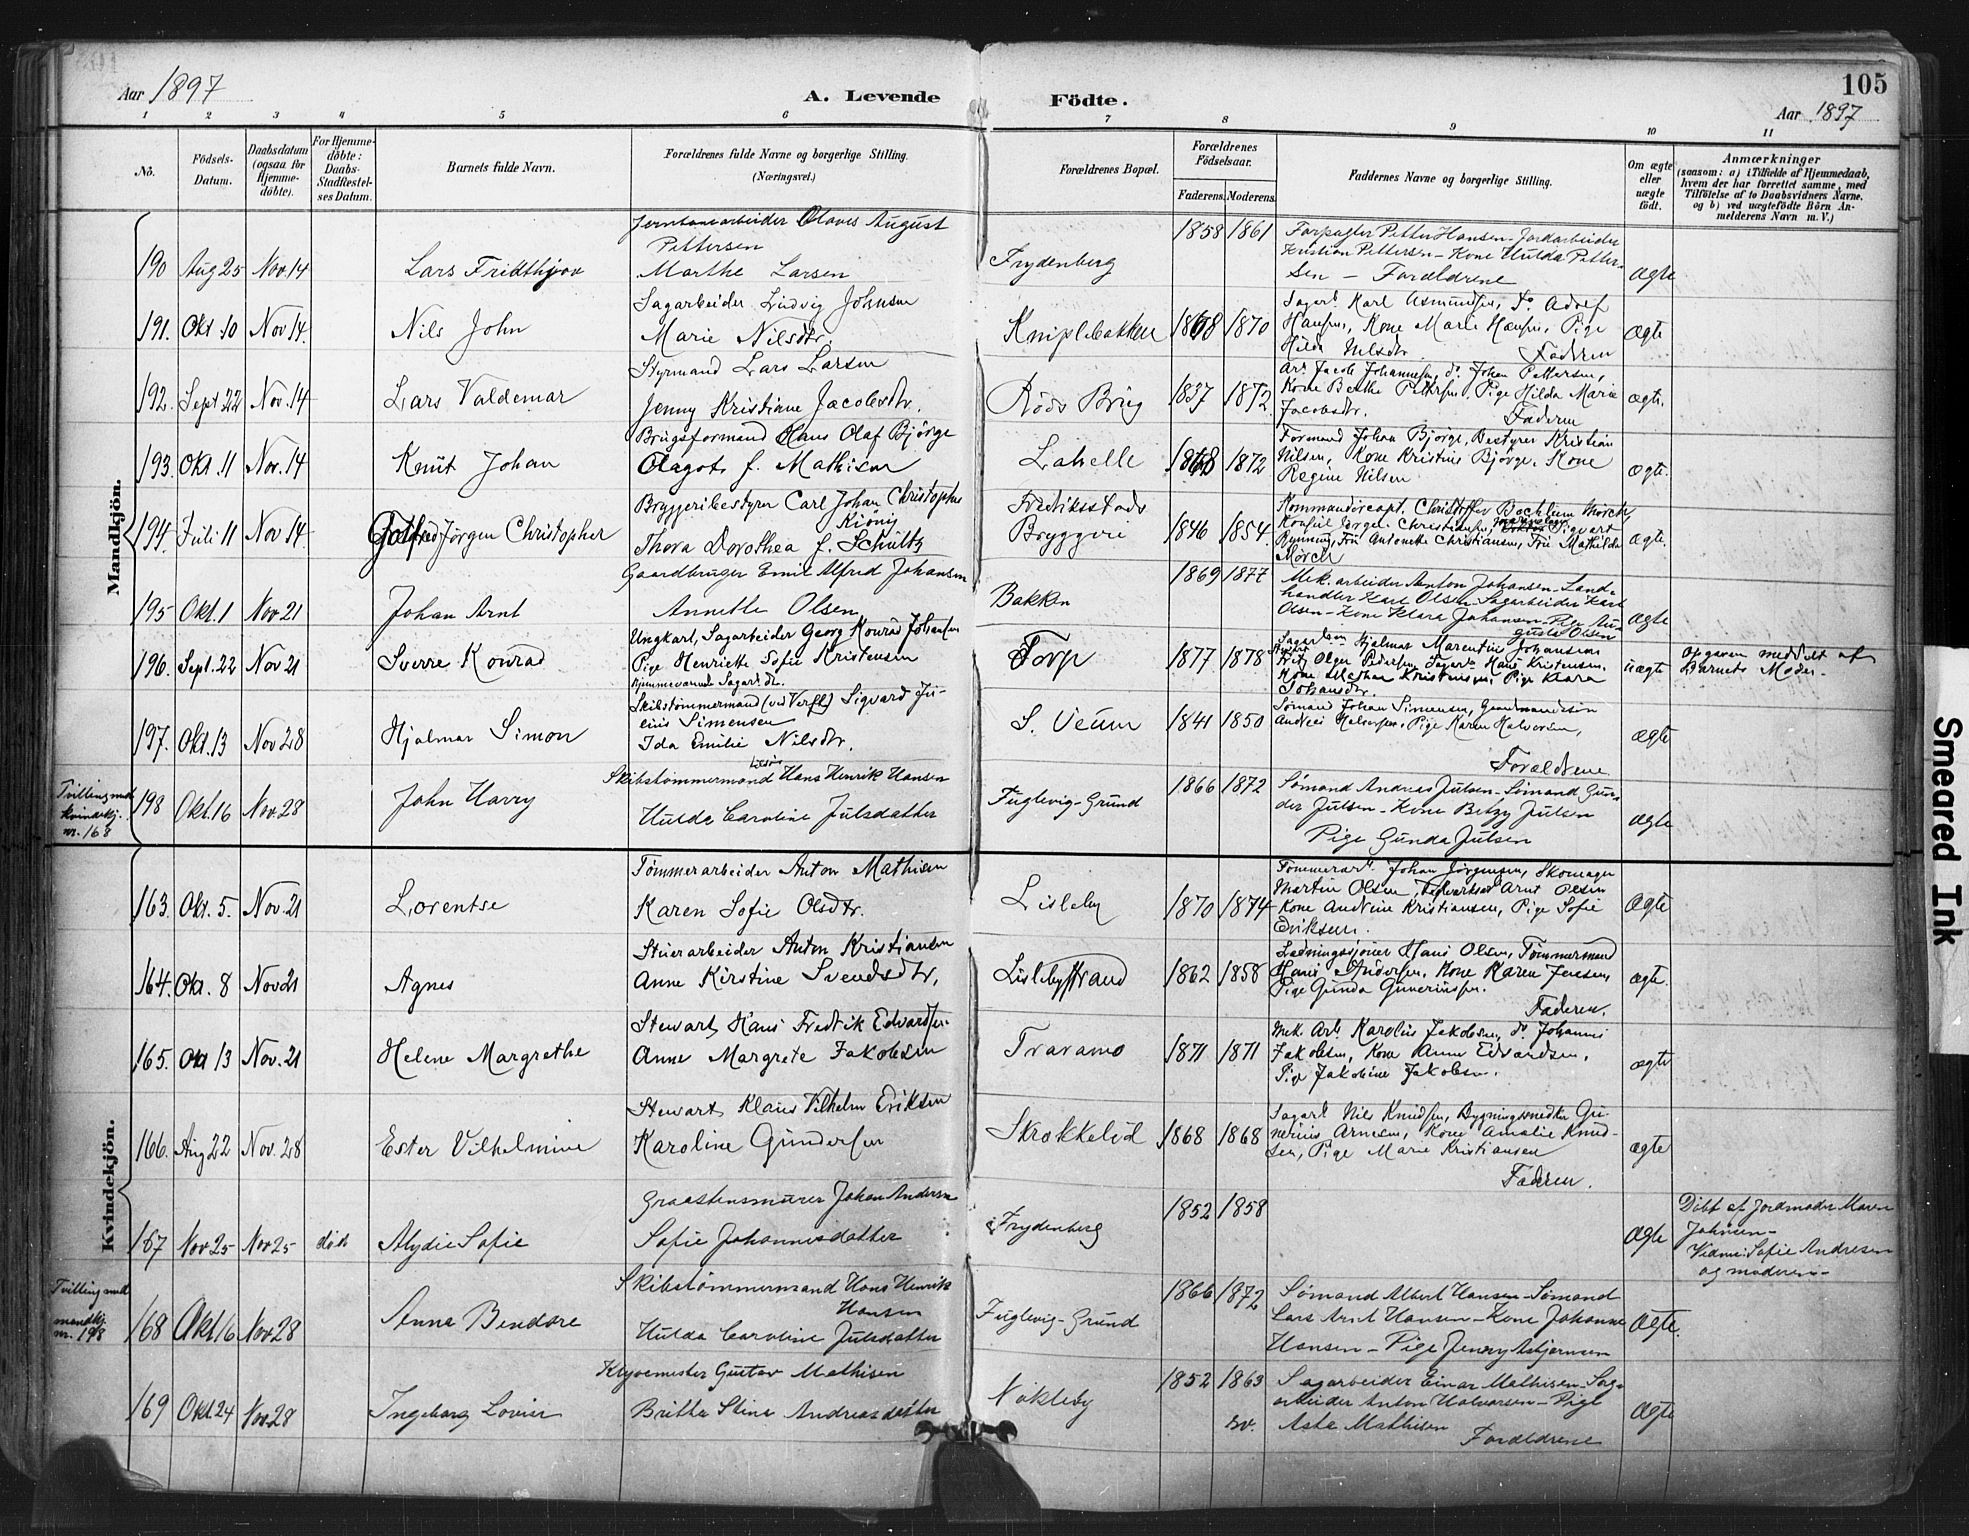 105
Aar 1897
A. Levende Födte.
Aar 1897
1 2 3 4 5 6 7 8 9 10 11
No.
Födsels-Datum.
Daabsdatum (ogsaa for Hjemme-döbte).
For Hjemme-döbte: Daabs-Stadfæstel-ses Datum.
Barnets fulde Navn.
Forældrenes fulde Navne og borgerlige Stilling.
(Næringsvei.)
Forældrenes Bopæl.
Forældrenes Födselsaar.
Faderens. Moderens.
Faddernes Navne og borgerlige Stilling.
Om ægte eller uægte födt.
Anmærkninger
(saasom: a) i Tilfælde af Hjemmedaab, hvem der har forrettet samme, med Tilföielse af to Daabsvidners Navne, og b) ved uægtefödte Börn An-melderens Navn m. V.)
Mandkjön.
190 Aug 25 Nov. 14 Lars Fridthjov
Olaves August
Pettersen
Marthe Larsen
Frydenberg 1858 1861
Forpagter Petter Hansen - Jordarbeider
Kristian Pettersen - Kone Hulda Petter-
sen - Forældrene
ægte
191. Okt. 10 Nov 14. Nils John
Sagarbeider Ludvig Johnsen
Marie Nilsdtr.
1868 1870
Sagarb. Karl Asmundsen, do Adolf
Hansen, Kone Marie Hansen, Pige
Hilda Nilsdtr. Faderen
ægte
192. Sept 22 Nov. 14 Lars Valdemar
Styrmand Lars Larsen
Jenny Kristiane Jacobsdtr.
Röds Brug 1837 1872.
Arb. Jacob Johannesen, do. Johan Pettersen,
Kone Berthe Pettersen, Pige Hilda Marie
Jacobsdtr. Faderen
ægte.
193. Okt. 11 Nov. 14 Knut Johan
Brugsformand Hans Olaf Björge
Aagot f. Mathisen
Lahelle 1868 1872
Formand Johan Björge, Bestyrer Kristian
Nilsen, Kone Kristine Björge, Kone
Regine Nilsen
ægte.
194. Juli 11 Nov 14. Gotfred Jörgen Christopher
Bryggeribestyrer Carl Johan Christopher
Kionig
Thora Dorothea f. Schultz
Fredriksstads
Bryggeri 1846 1854.
Kommandörcapt. Christoffer Mörch,
Konsul Jörgen Christiansen, Sigvart
Fru Antonette Christiansen, Fru Mathilda
Mörch
ægte.
195 Okt. 1 Nov 21 Johan Arnt
Gaardbruger Emil Alfred Johansen
Annette Olsen
Bakken 1869 1877
Mek. arbeider Anton Johansen - Land-
handler Karl Olsen - Sagarbeider Karl
Olsen - Kone Klara Johansen - Pige Au-
gusta Olsen
ægte
196. Sept. 22 Nov 21 Sverre Konrad
Ungkarl, Sagarbeider Georg Konrad Johansen
Pige Henriette Sofie Kristensen
Hjemmeværende Sagarb. dtr.
Torp 1877 1878
Hjalmar Marentin Johansen
Fritz Olger Pedersen, Sagarb. Hans Kristensen.
Kone Mathea Kristensen, Pige Klara
Johansdtr.
uægte
Opgaven meddelt af
Barnets Moder.
197. Okt. 13 Nov 28 Hjalmar Simon
Skibstömmermand (ved Verft) Sigvard Ju-
lius Simensen
Ida Emilie Nilsdtr.
S. Veum 1841 1850
Sömand Johan Simensen, Gaardmandssön
Andreas Halvorsen, Pige Karen Halvorsen,
Forældrene
ægte
Tvilling med
kvindekj.
nr. 168
198 Okt. 16 Nov. 28 John Harry
Skibstömmermand Hans Henrik Hansen
Hulda Caroline Julsdatter
Fuglevig-Grund 1866 1872
Sömand Andreas Julsen - Sömand Gun-
der Julsen - Kone Betzy Julsen
Pige Gunda Julsen
ægte
Kvindekjön.
163. Okt. 5. Nov. 21 Lorentse
Tömmerarbeider Anton Mathisen
Karen Sofie Olsdtr.
Lisleby 1870 1874
Tömmerarb. Johan Jörgensen, Skomager
Martin Olsen, Teglverksarb. Arnt Olsen
Kone Andrine Kristiansen, Pige Sofie
Eriksen.
ægte
164. Okt. 8 Nov 21 Agnes
Stuerarbeider Anton Kristiansen
Anne Kirstine Svendsdtr.
Lislebystrand 1862 1858
Hans Olsen, Tömmermand
Hans Andersen, Kone Karen Jensen,
Pige Gunda Gunerinsen.
Faderen.
ægte.
165. Okt 13 Nov. 21 Helene Margrethe
Stewart Hans Fredrik Edvardsen
Anne Margrete Jakobsen
Traramo 1871 1871
Mek. Arb. Karolius Jakobsen, do. Johannes
Jakobsen, Kone Anne Edvardsen,
Pige Jakobine Jakobsen.
ægte
166. Aug 22 Nov. 28 Ester Vilhelmine
Stewart Klaus Vilhelm Eriksen
Karoline Gundersen
Skrokkelid 1868 1868
Sagarb. Nils Knudsen, Bygningssnedker Gu-
nerius Arnesen, Kone Amalie Knud-
sen, Pige Marie Kristiansen
Faderen.
ægte
167 Nov 25 Nov 25 död Alydie Sofie
Graastensmurer Johan Andersen
Sofie Johannesdatter
Frydenberg 1852 1858
ægte
Döbt af Jordmoder Maren
Johnsen -
Vidne: Sofie Andresen
og moderen -
Tvilling med
mandkj.
nr. 198
168 Okt. 16 Nov 28 Anna Bendore
Skibstömmermand Hans Henrik
Hansen
Hulda Caroline Julsdatter
Fuglevig-Grund 1866 1872
Sömand Albert Hansen - Sömand
Lars Arnt Hansen - Kone Johanne
Hansen - Pige Jenny Asbjørnsen
Ægte.
169 Okt 24 Nov 28 Ingeborg Lovise
Klyvemester Gustav Mathisen
Britha Stina Andreasdatter
Nökleby 1852 1863
sv.
Sagarbeider Einar Mathisen - Sag-
arbeider Anton Halvorsen - Pige
Asta Mathisen
Forældrene
Ægte
Smeared Ink